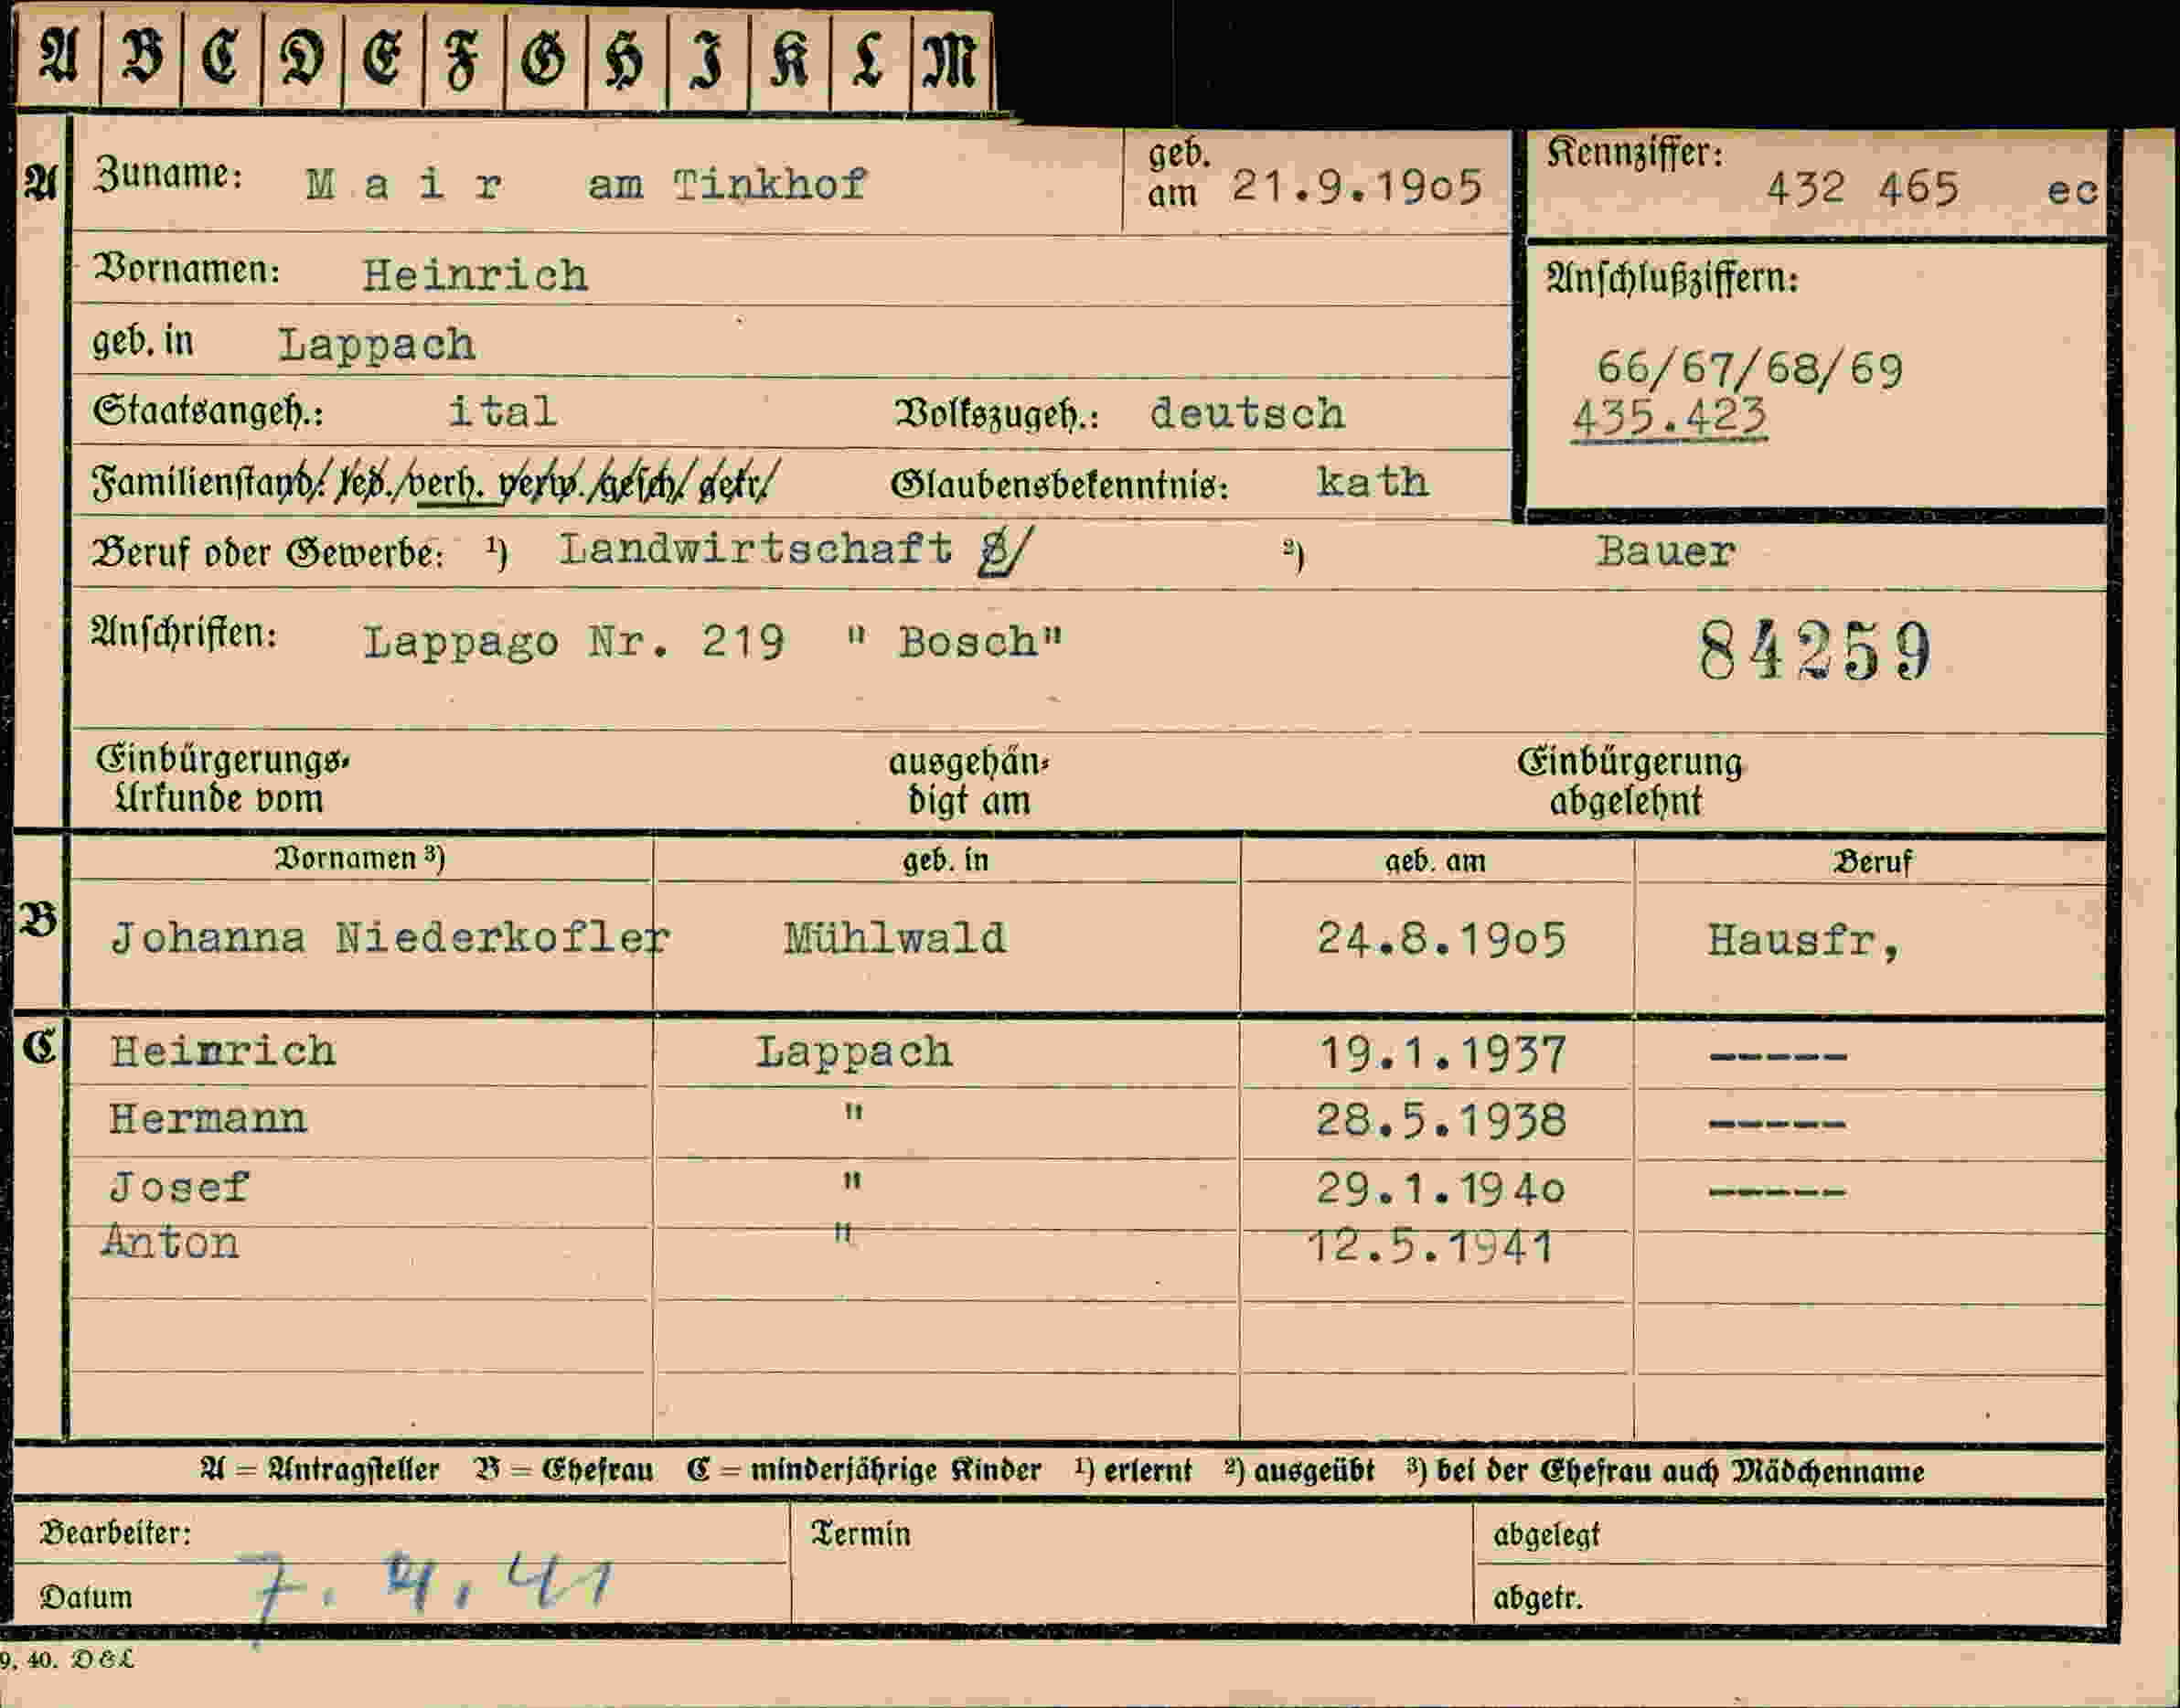 A B C D E F G H I K L M
A Zuname: M a i r am Tinkhof geb. am 21.9.19o5 Kennziffer: 432 465 ec
Vornamen: Heinrich Anschlußziffern:
geb. in Lappach 66/67/68/69
Staatsangeh.: ital Volkszugeh.: deutsch 435.423
Familienstand: led. verh. verw. gesch. getr. Glaubensbekenntnis: kath
Beruf oder Gewerbe: ¹) Landwirtschaft ²) Bauer
Anschriften: Lappago Nr. 219 " Bosch" 84259
Einbürgerungs- ausgehän- Einbürgerung
Urkunde vom digt am abgelehnt
Vornamen ³) geb. in geb. am Beruf
B Johanna Niederkofler Mühlwald 24.8.19o5 Hausfr,
C Heinrich Lappach 19.1.1937 -----
Hermann " 28.5.1938 -----
Josef " 29.1.194o -----
Anton " 12.5.1941
A = Antragsteller B = Ehefrau C = minderjährige Kinder ¹) erlernt ²) ausgeübt ³) bei der Ehefrau auch Mädchenname
Bearbeiter: Termin abgelegt
Datum 7. 4. 41 abgetr.
9. 40. D&L